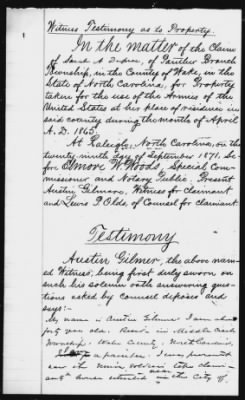 Witness Testimony as to Property.
In the matter of the Claim
of Isaac A Dupree, of Panther Branch
Township, in the County of Wake, in the
State of North Carolina, for Property
taken for the use of the Armies of the
United States at his place of residence in
said county during the month of April
A. D. 1865.
At Raleigh, North Carolina, on the
twenty ninth day of September 1871. Be-
fore Elmore W. Woods, Special Com-
missioner and Notary Public. Present
Austin Gilmore, Witness for Claimant
and Lewis P. Olds of Counsel for claimant.
Testimony
Austin Gilmer, the above nam-
ed Witness, being first duly sworn on
such his solemn oath answering ques-
tions asked by counsel deposes and
says:-
My name is Austin Gilmer I am about
forty years old. Reside in Middle Creek
Township. Wake County. North Carolina.
a farmer. I was present
saw the Union soldiers take claim-
ant's horse on the City of